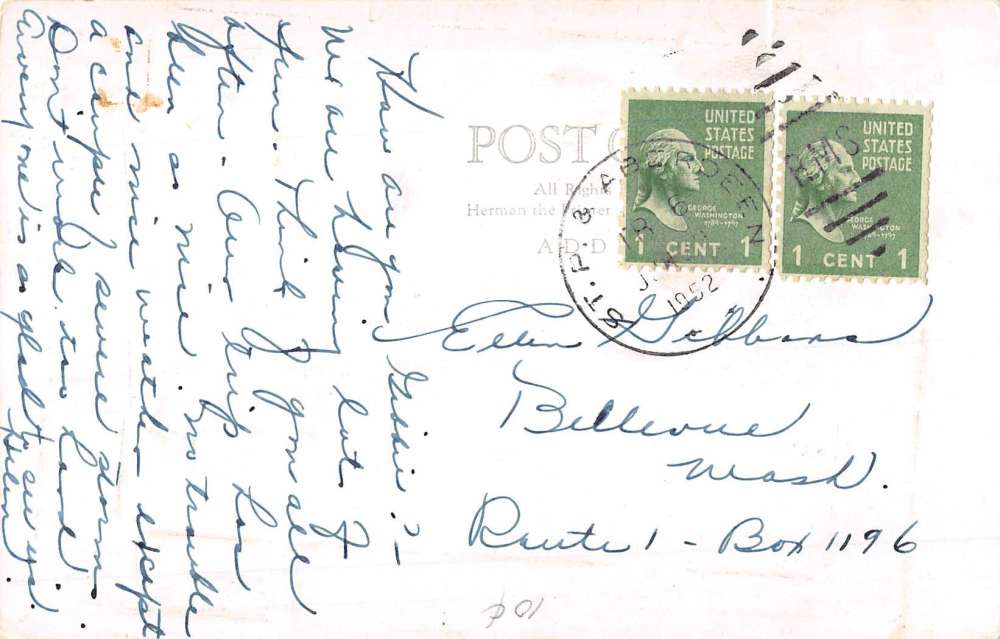 How are you Gibbie? -
We are having lots of
fun. Think of you all
often - Our trip has
been a nice no trouble
and nice weather except
a couple of severe storm
Don't work too hard
Everyone is so glad to see us!
Helen
POST C
All Rights
Herman the
ADD
UNITED
STATES
POSTAGE
GEORGE
WASHINGTON
1789-1797
1 CENT 1
UNITED
STATES
POSTAGE
GEORGE
WASHINGTON
1789-1797
1 CENT 1
ST. P. & ABERDEEN
TR 6
1952
RMS
Ellen Gibbons
Bellevue
Wash.
Route 1 - Box 1196
10¢